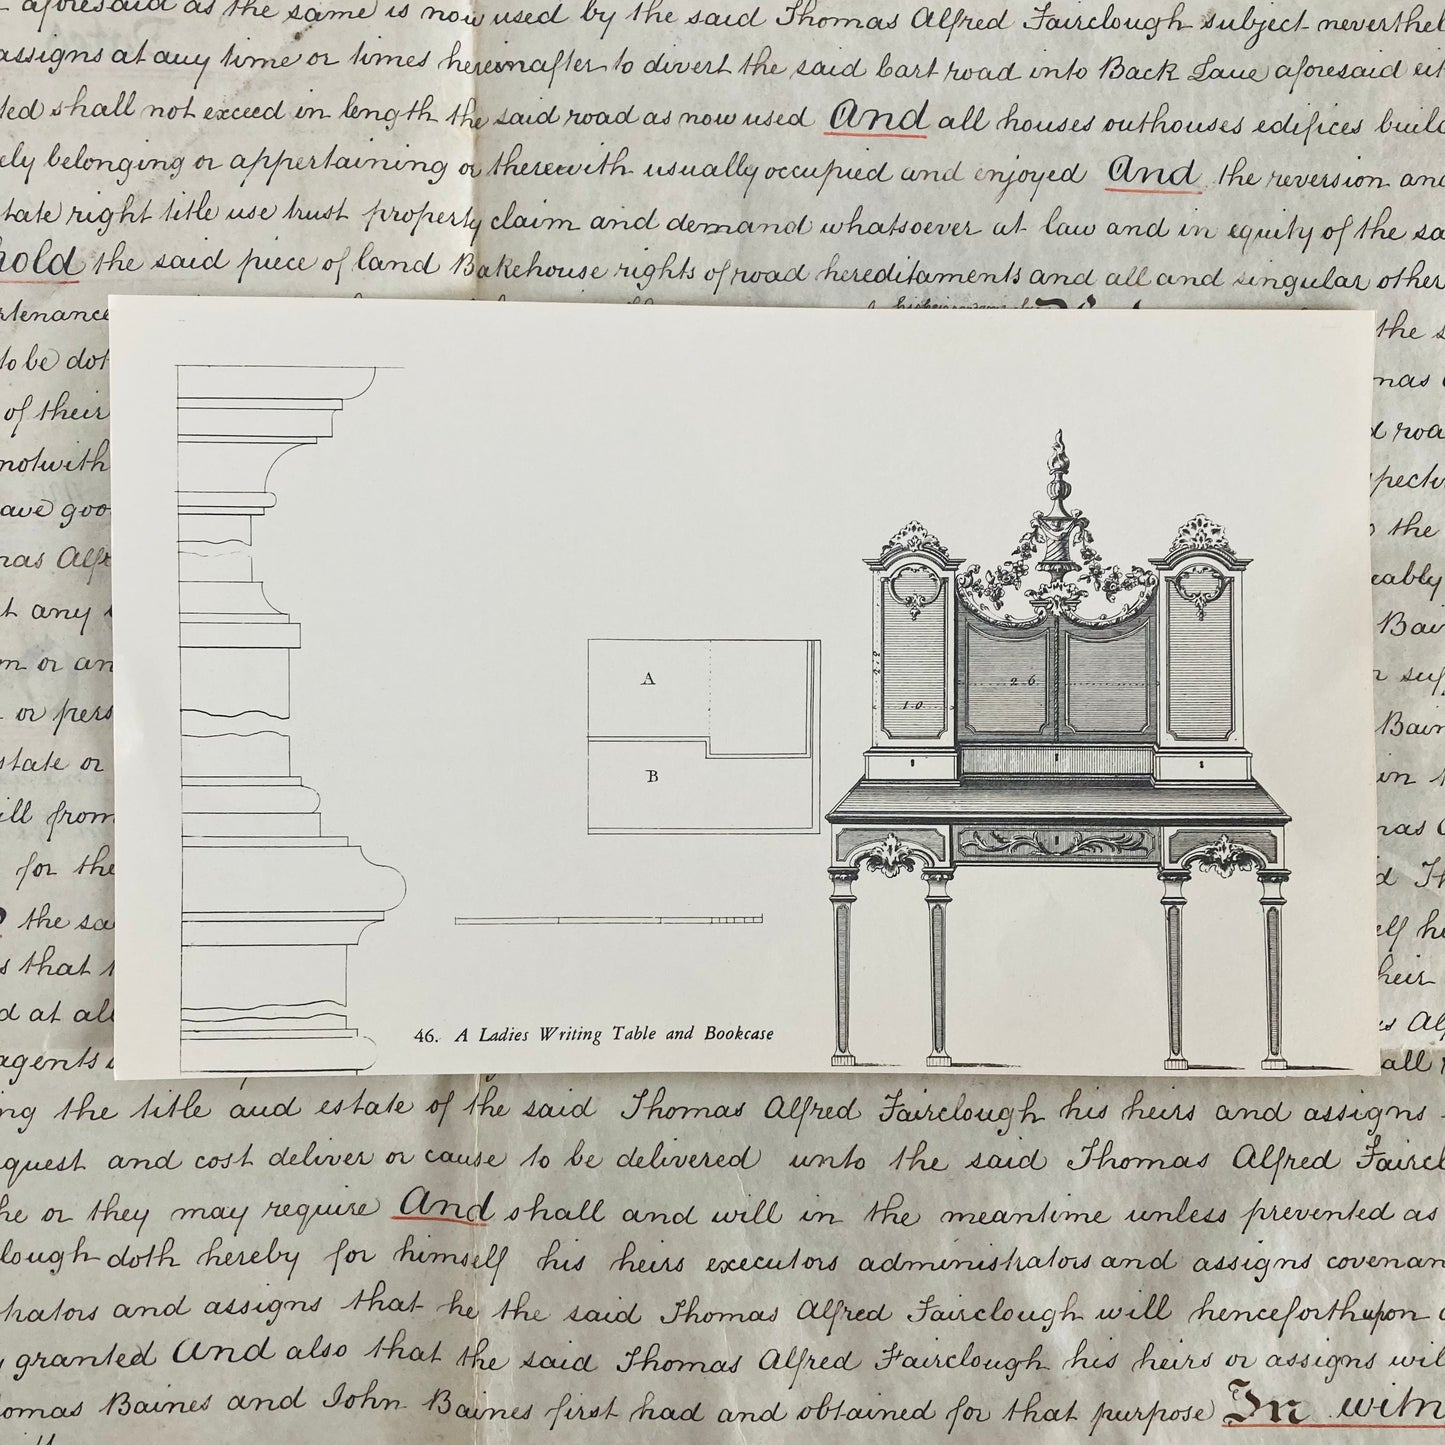 aforesaid as the same is now used by the said Thomas Alfred Fairclough subject neverthel
assigns at any time or times hereinafter to divert the said Cart road into Back Lane aforesaid eit
ted shall not exceed in length the said road as now used And all houses outhouses edifices build
ely belonging or appertaining or therewith usually occupied and enjoyed And the reversion and
tate right title use trust property claim and demand whatsoever at law and in equity of the sa
hold the said piece of land Bakehouse rights of road hereditaments and all and singular other
rtenance
the s
to be dot
mas
of their
d roa
notwith
pecti
ave goo
the
mas Alfr
eably
t any
Bai
m or an
r suf
or pers
Bain
state or
in
ill from
mas
for the
d Th
the sa
elf he
s that
heir
d at all
s Alf
agents
all
A
B
2 6
1.0
46. A Ladies Writing Table and Bookcase
ng the title and estate of the said Thomas Alfred Fairclough his heirs and assigns
quest and cost deliver or cause to be delivered unto the said Thomas Alfred Faircl
he or they may require And shall and will in the meantime unless prevented as
lough doth hereby for himself his heirs executors administrators and assigns covenan
trators and assigns that he the said Thomas Alfred Fairclough will henceforth upon
y granted And also that the said Thomas Alfred Fairclough his heirs or assigns wil
omas Baines and John Baines first had and obtained for that purpose In witn